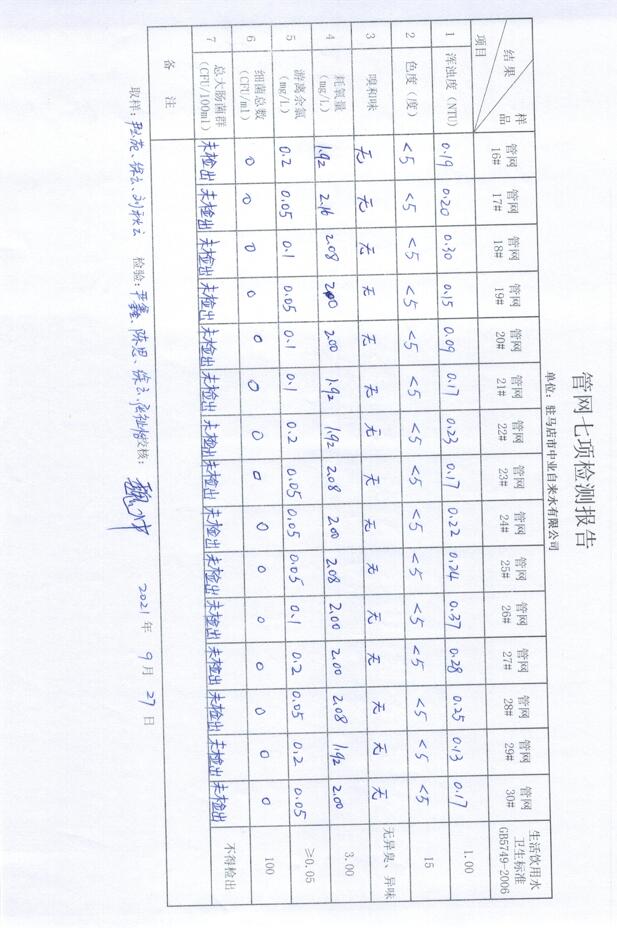 管网七项检测报告
单位：驻马店市中业自来水有限公司
样品 结果 项目 管网16# 管网17# 管网18# 管网19# 管网20# 管网21# 管网22# 管网23# 管网24# 管网25# 管网26# 管网27# 管网28# 管网29# 管网30# 生活饮用水卫生标准GB5749-2006
1 浑浊度（NTU） 0.19 0.20 0.30 0.15 0.09 0.17 0.23 0.17 0.22 0.24 0.37 0.28 0.25 0.13 0.17 1.00
2 色度（度） <5 <5 <5 <5 <5 <5 <5 <5 <5 <5 <5 <5 <5 <5 <5 15
3 嗅和味 无 无 无 无 无 无 无 无 无 无 无 无 无 无 无 无异臭、异味
4 耗氧量（mg/L） 1.92 2.16 2.08 2.00 2.00 1.92 1.92 2.08 2.00 2.08 2.00 2.00 2.08 1.92 2.00 3.00
5 游离余氯（mg/L） 0.2 0.05 0.1 0.05 0.1 0.1 0.2 0.05 0.05 0.05 0.1 0.2 0.05 0.2 0.05 ≥0.05
6 细菌总数（CFU/ml） 0 0 0 0 0 0 0 0 0 0 0 0 0 0 0 100
7 总大肠菌群（CFU/100ml） 未检出 未检出 未检出 未检出 未检出 未检出 未检出 未检出 未检出 未检出 未检出 未检出 未检出 未检出 未检出 不得检出
备 注
取样： 刘秋云 检验： 陈思、 校核： 2021 年 9 月 27 日